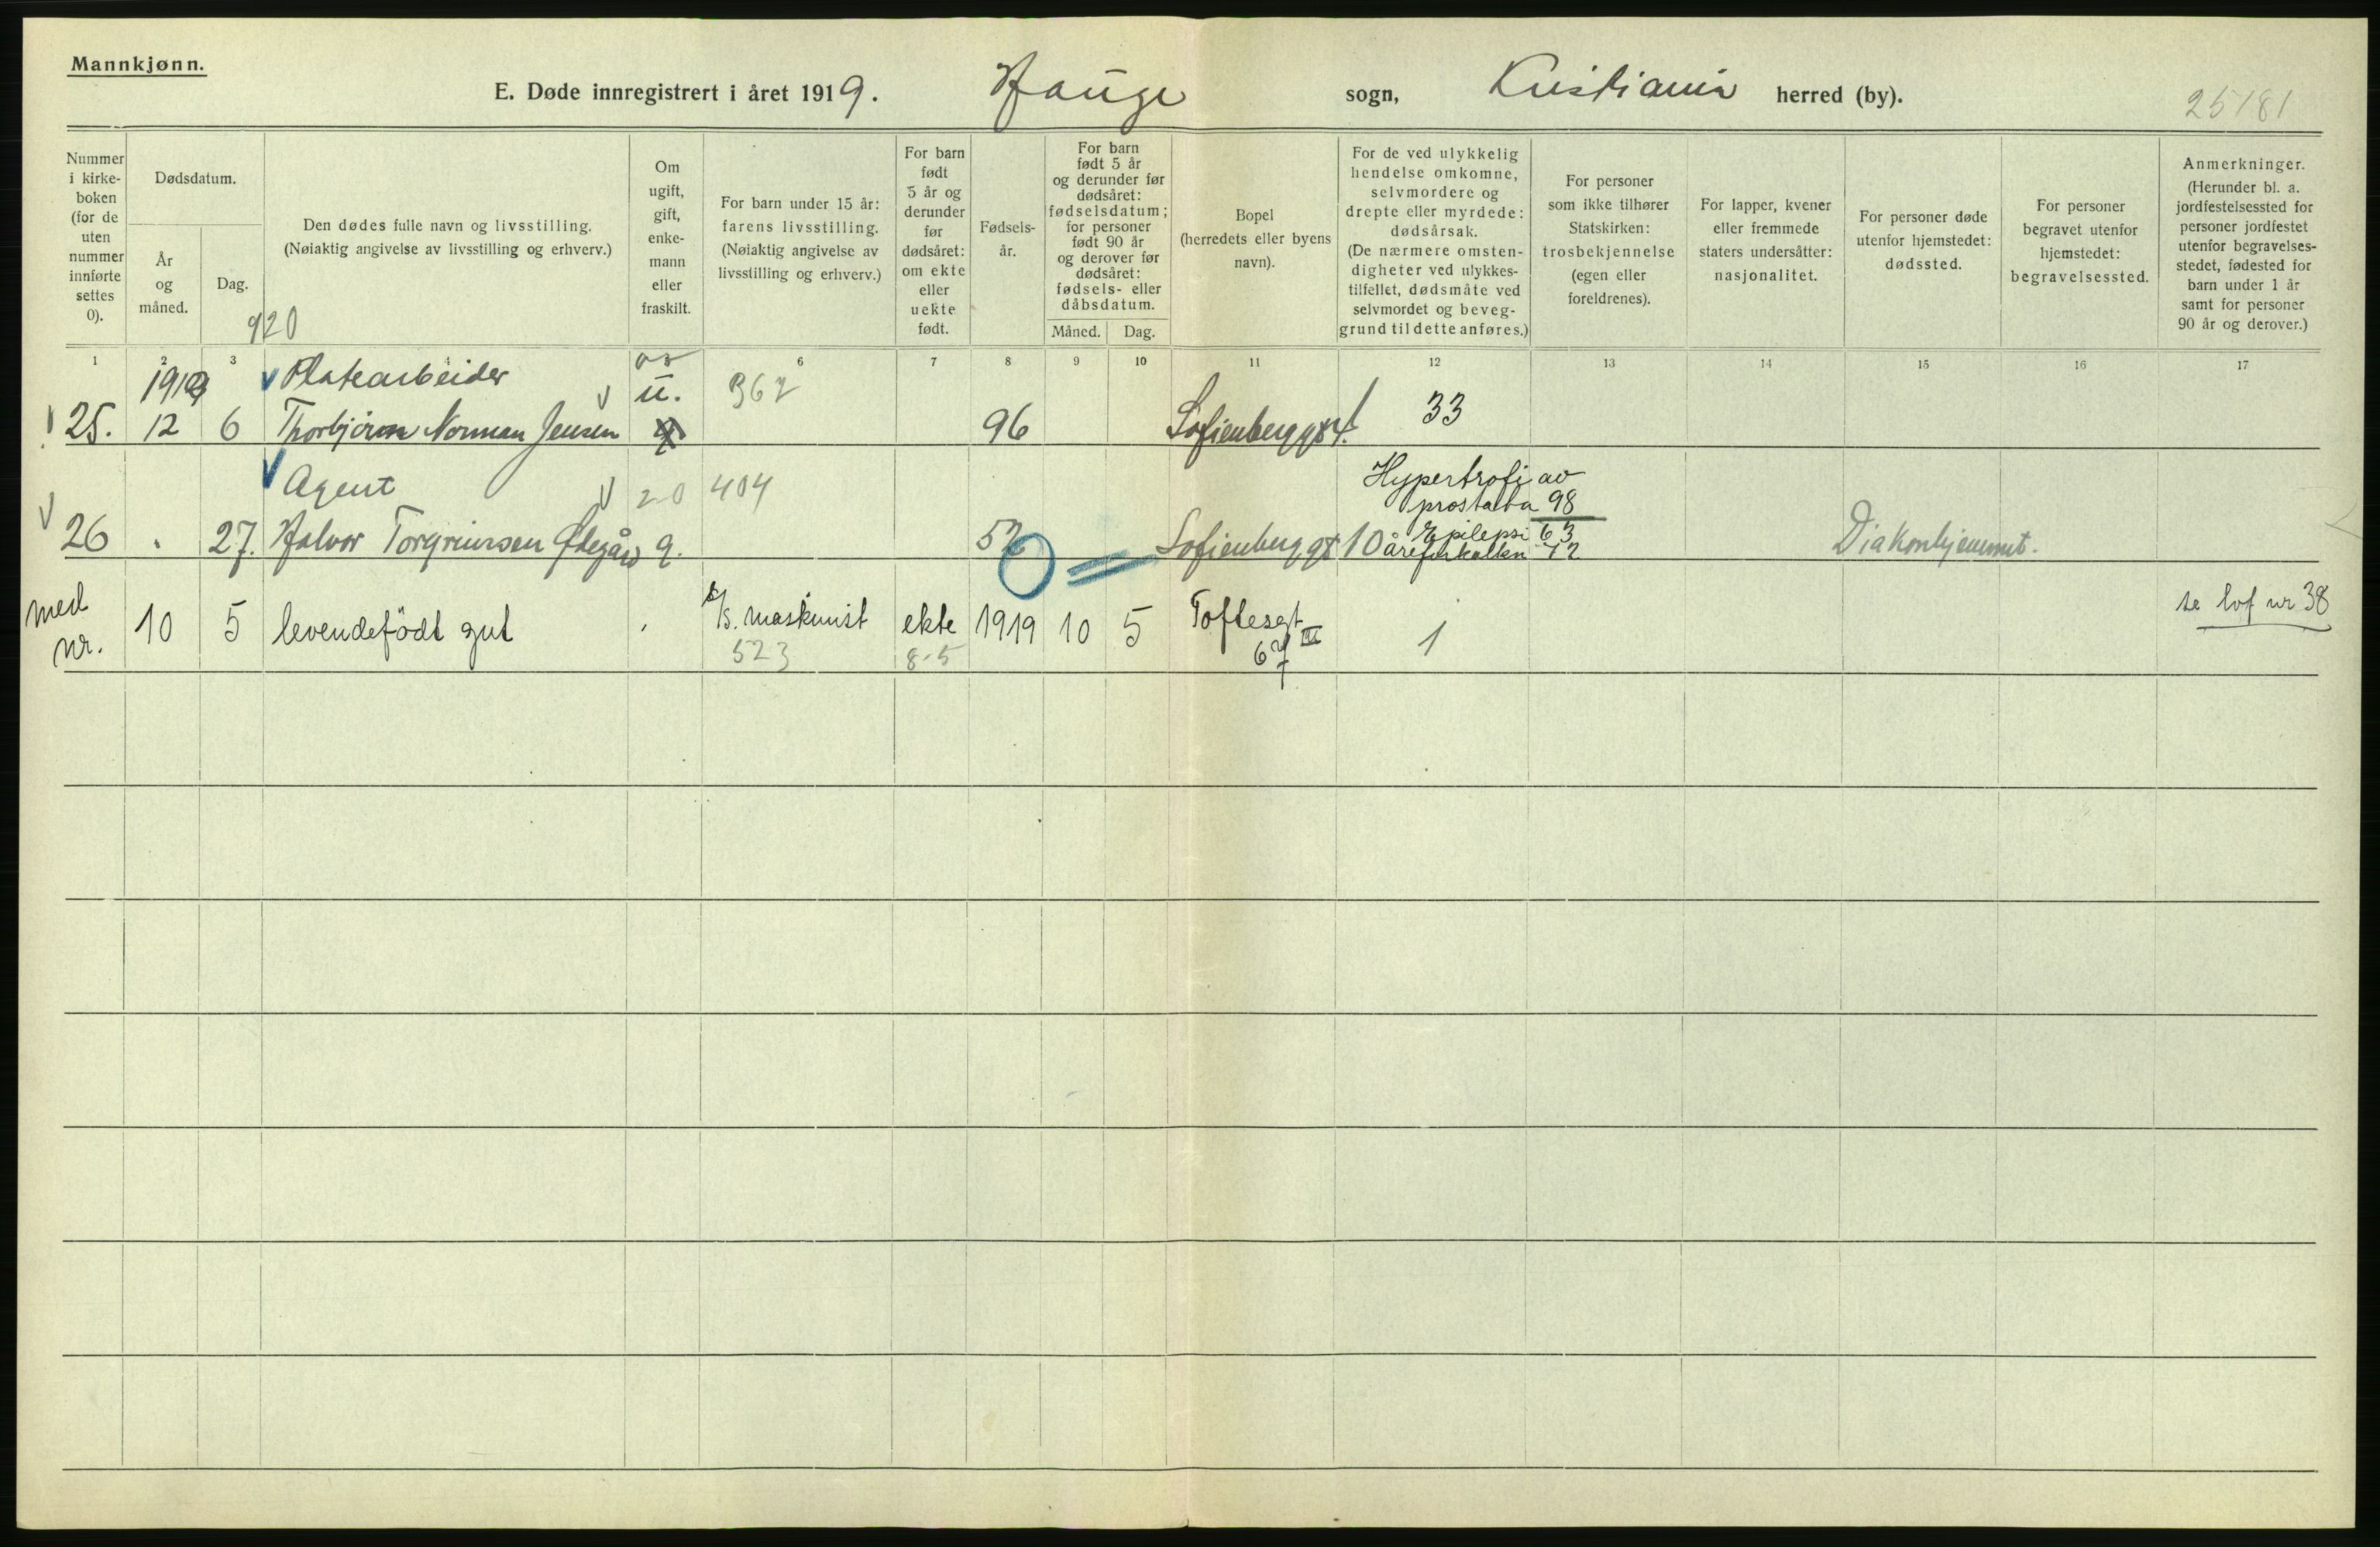 Mannkjønn.
E. Døde innregistrert i året 1919. Hauge sogn, Kristiania herred (by).
25181
Nummer i kirke-boken (for de uten nummer innførte settes 0).
Dødsdatum.
År og måned.
Dag.
Den dødes fulle navn og livsstilling.
(Nøiaktig angivelse av livsstilling og erhverv.)
920
Om ugift, gift, enke-mann eller fraskilt.
For barn under 15 år: farens livsstilling.
(Nøiaktig angivelse av livsstilling og erhverv.)
For barn født 5 år og derunder før dødsåret: om ekte eller uekte født.
Fødsels-år.
For barn født 5 år og derunder før dødsåret: fødselsdatum; for personer født 90 år og derover før dødsåret: fødsels- eller dåbsdatum.
Måned. Dag.
Bopel
(herredets eller byens navn).
For de ved ulykkelig hendelse omkomne, selvmordere og drepte eller myrdede: dødsårsak.
(De nærmere omsten-digheter ved ulykkes-tilfellet, dødsmåte ved selvmordet og beveg-grund til dette anføres.)
For personer som ikke tilhører Statskirken: trosbekjennelse
(egen eller foreldrenes).
For lapper, kvener eller fremmede staters undersåtter: nasjonalitet.
For personer døde utenfor hjemstedet: dødssted.
For personer begravet utenfor hjemstedet: begravelsessted.
Anmerkninger.
(Herunder bl. a. jordfestelsessted for personer jordfestet utenfor begravelses-stedet, fødested for barn under 1 år samt for personer 90 år og derover.)
1 2 3 6 7 8 9 10 11 12 13 14 15 16 17
1919 Platearbeider u. 362
25. 12 6 Thorbjørn Norman Jensen 96 Sofienberg gt 4. 33
Agent 20 404 Hypertrofi av
prostata 98
26 . 27. Halvor Torgrimsen Ødegård g. 52 Sofienberg gt 10 Epilepsi 63
åreforkalkn 72 Diakonhjemmet.
med nr. 10 5 levendefödt gut B. maskinist ekte 1919 10 5 Toftesgt 67 III 1 se lof nr 38
523 8-5